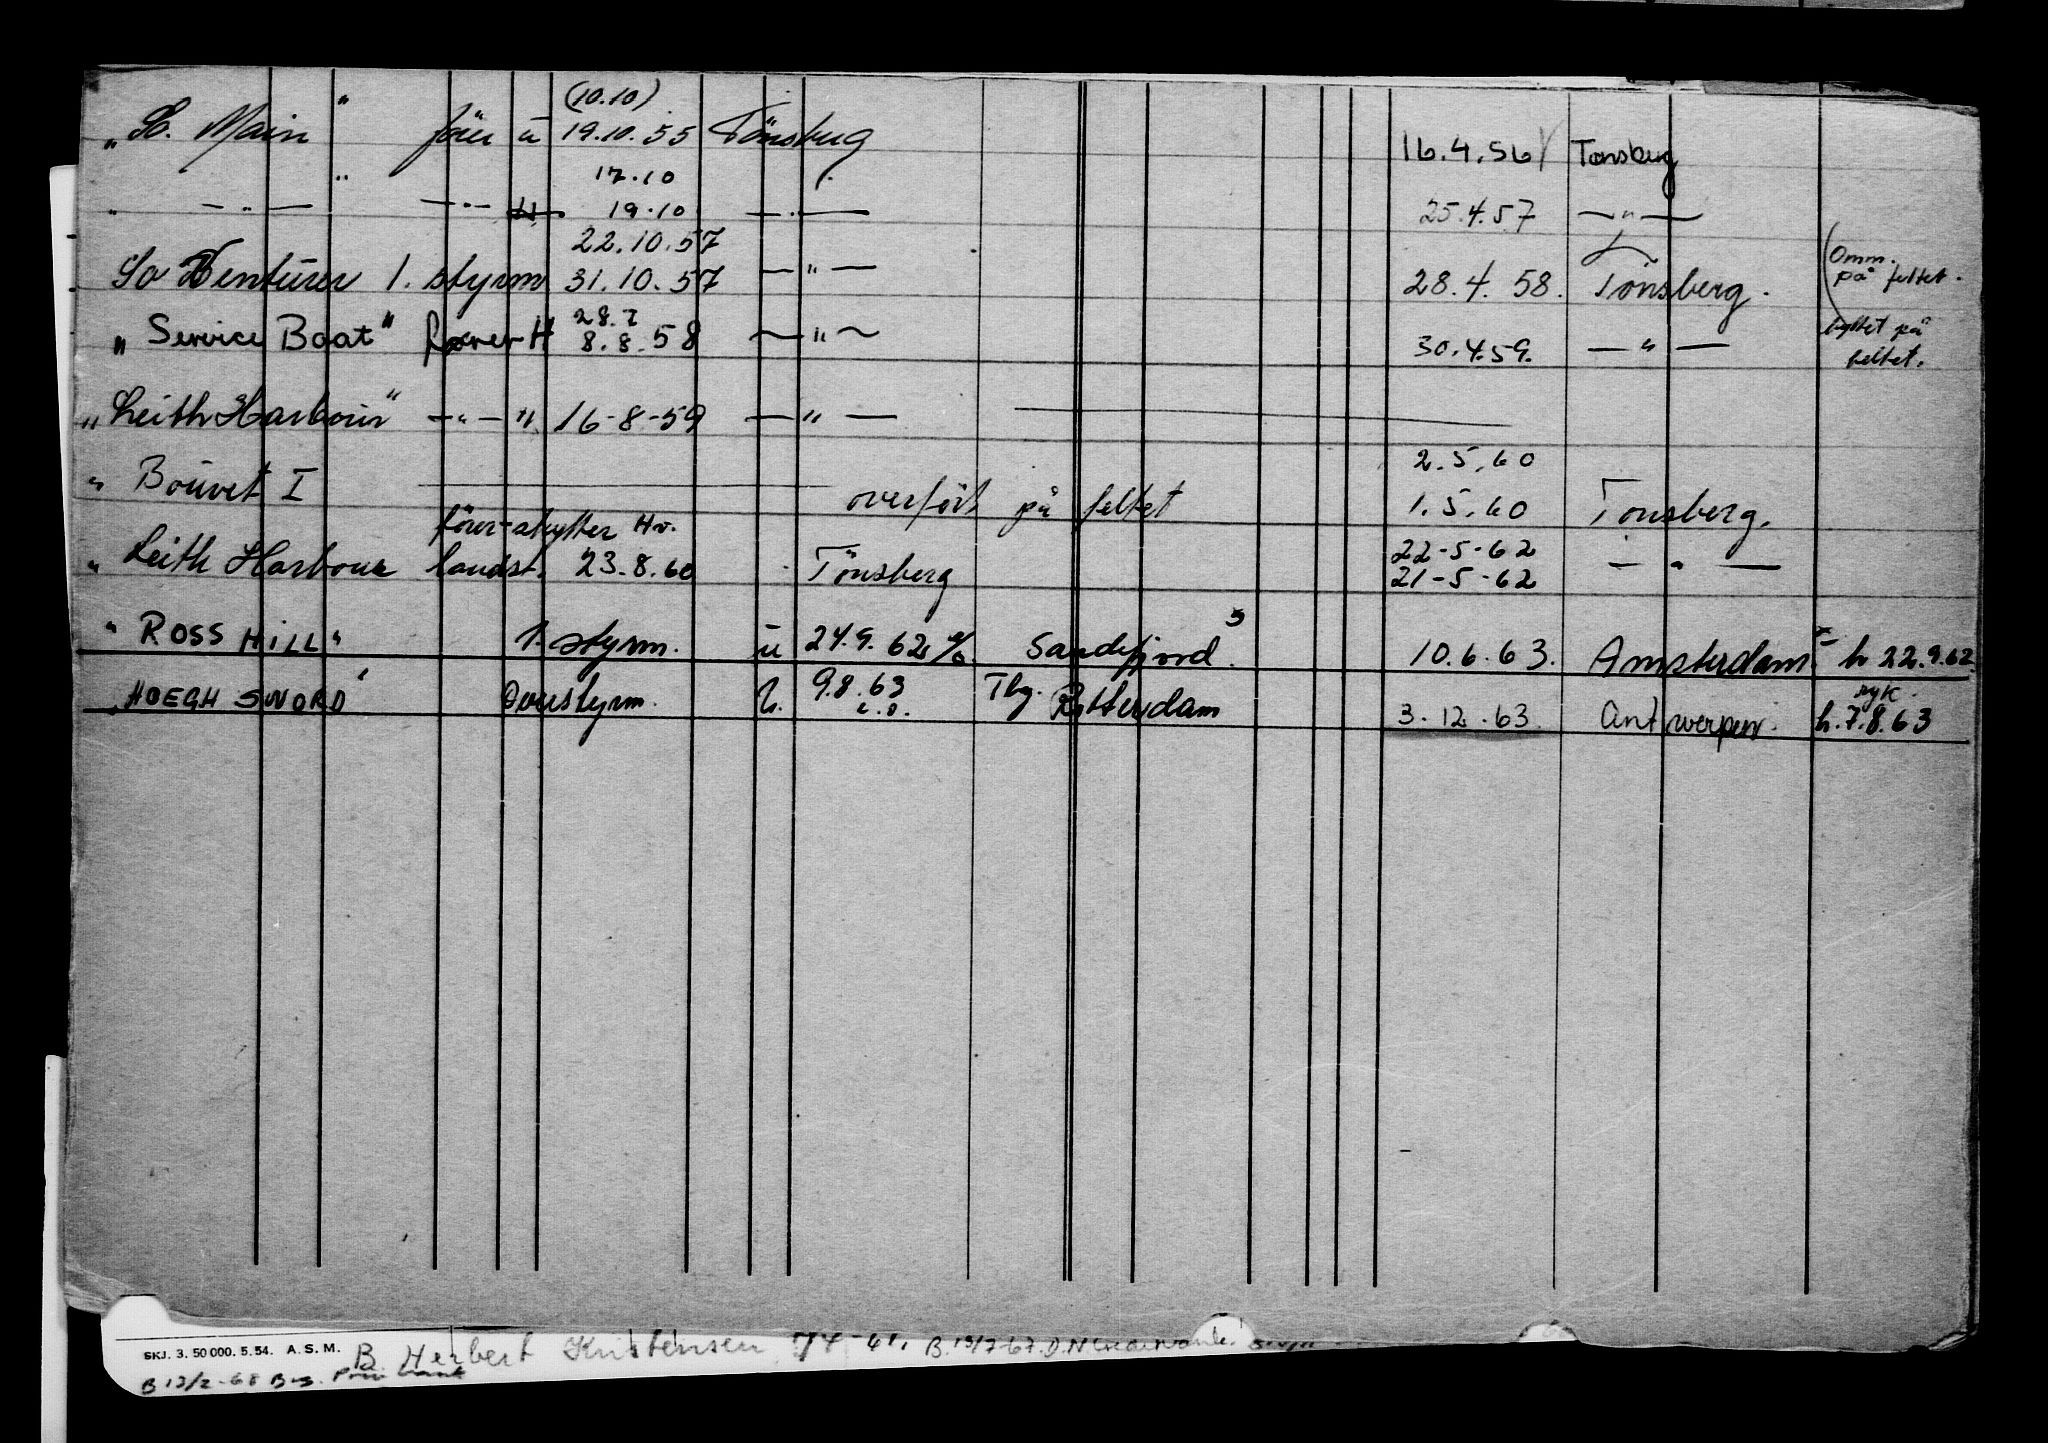 (10.10)
"So. Main" fører u 19.10.55 Tönsberg 16.4.56 Tønsberg
17.10
" — " — " — " — H 19.10 — " — 25.4.57 — " —
22.10.57
So Venturer 1. styrm 31.10.57 — " — 28.4.58. Tönsberg. (Omm. på feltet.
28.7
"Service Boat" fører H 8.8.58 — " — 30.4.59. — " — byttet på feltet.
"Leith Harbour" — " — " 16-8-59 — " —
2.5.60
" Bouvet I overfört på feltet 1.5.60 Tönsberg.
förer-skytter Hv. 22-5-62
" Leith Harbour landst. 23.8.60 Tönsberg 21-5-62 — " —
"ROSS HILL" 1. styrm. u 24.9.62 Sandefjord. 10.6.63. Amsterdam h 22.9.62
"HOEGH SWORD" Overstyrm. h. 9.8.63 Tbg. Rotterdam 3.12.63. Antwerpen. h. 7.8.63
SKJ. 3. 50 000. 5. 54. A. S. M. B. Herbert Kristensen 74-41, B. 13/7-67.
B 13/2-68